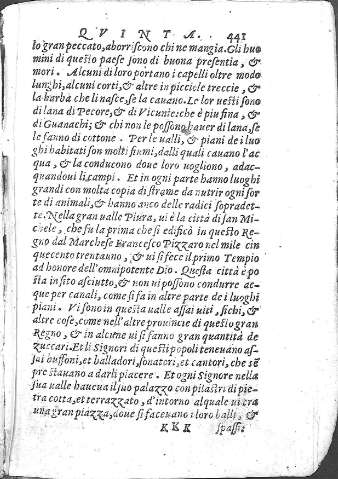 QVINTA. 441
lo gran peccato, aborriscono chi ne mangia. Gli huo
mini di questo paese sono di buona presentia, &
mori. Alcuni di loro portano i capelli oltre modo
lunghi, alcuni corti, & altre in picciole treccie, &
la barba che li nasce, se la cauano. Le lor uesti sono
di lana di Pecore, & di Vicunie: che è piu fina, &
di Guanachi; & chi non le possono hauer di lana, se
le fanno di cottone. Per le ualli, & piani de i luo
ghi habitati son molti fiumi, dalli quali cauano l'ac
qua, & la conducono doue loro uogliono, adac-
quandoui li campi. Et in ogni parte hanno luoghi
grandi con molta copia di strame da nutrir ogni sor
te di animali, & hanno anco delle radici sopradet-
te. Nella gran ualle Piura, ui è la città di San Mi-
chele, che fu la prima che si edificò in questo Re-
gno dal Marchese Francesco Pizzaro nel mile cin
quecento trentauno, & ui si fece il primo Tempio
ad honore dell'omnipotente Dio. Questa città è po
sta in sito asciutto, & non ui possono condurre ac-
que per canali, come si fa in altre parte de i luoghi
piani. Vi sono in questa ualle assai uiti, fichi, &
altre cose, come nell'altre prouincie di questo gran
Regno, & in alcune ui si fanno gran quantità de
zuccari. Et li Signori di questi popoli teneuano as-
sai buffoni, et balladori, sonatori, et cantori, che sē
pre stauano a darli piacere. Et ogni Signore nella
sua ualle haueua il suo palazzo con pilastri di pie-
tra cotta, et terrazzato, d'intorno al quale ui era
una gran piazza, doue si faceuano i loro balli, &
KKK spassi: